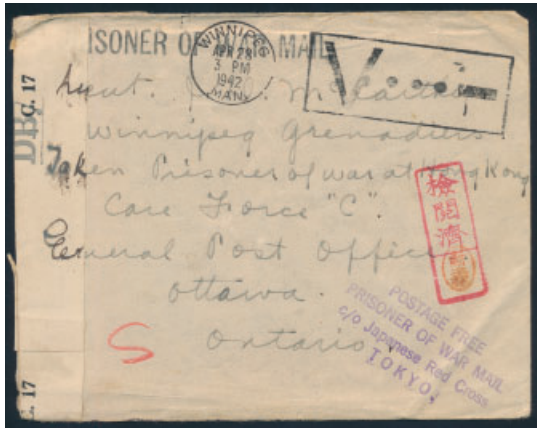 ISONER OF WAR MAIL
WINNIPEG
APR 28
3 PM
1942
MAN.
V...-
C. 17
DB/
Lieut.
Winnipeg Grenadiers
Taken Prisoner of war at Hong Kong
Care Force "C".
General Post Office
Ottawa.
Ontario.
檢閲濟
POSTAGE FREE
PRISONER OF WAR MAIL
c/o Japanese Red Cross
TOKYO.
S
C. 17